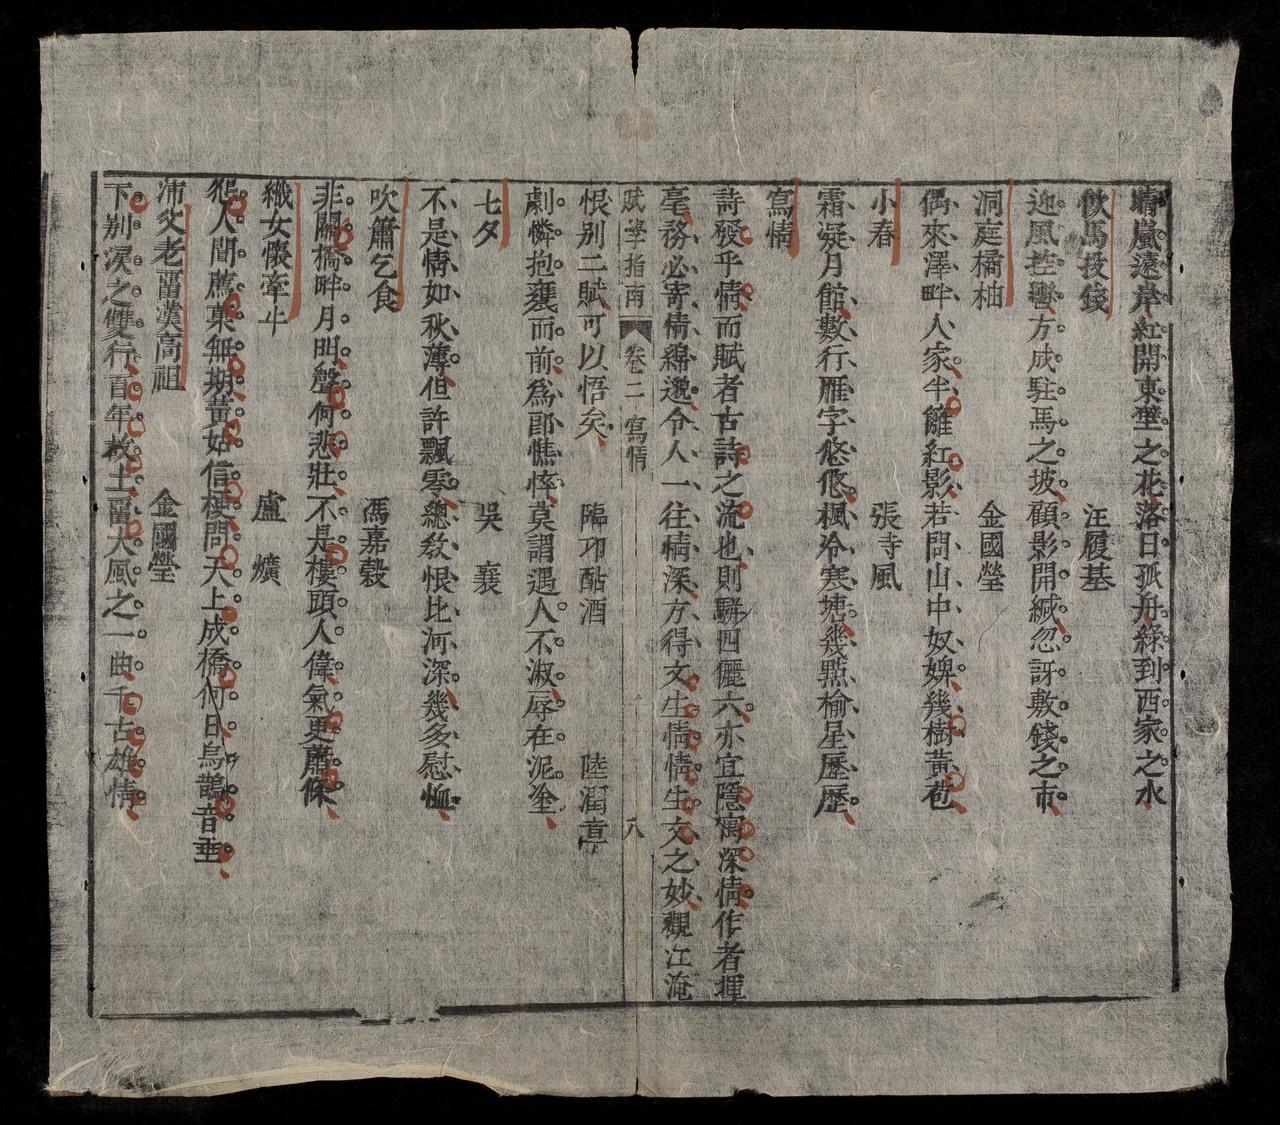 晴嵐遠岸紅開東埜之花落日孤舟綠到西家之水
飲馬投錢 汪履基
迎風控轡方成駐馬之坡顧影開緘忽訝敷錢之市
洞庭橘柚 金國瑩
偶來澤畔人家半籬紅影若問山中奴婢幾樹黃苞
小春 張寺風
霜凝月館數行雁字悠悠楓冷寒塘幾點榆星歷歷
寫情
詩發乎情而賦者古詩之流也則駢四儷六亦宜隱寓深情作者揮
毫務必寄情綿邈令人一往情深方得文生情情生文之妙觀江淹
賦學指南 卷二 寫情 八
恨别二賦可以悟矣 臨邛酤酒 陸潤章
劇憐抱襄而前為郎憔悴莫謂遇人不淑辱在泥塗
七夕 吳襄
不是情如秋薄但許飄零總教恨比河深幾多慰恤
吹簫乞食 馮嘉穀
非關橋畔月明聲何悲壯不是樓頭人偉氣更蕭條
織女懷牽牛 盧爌
怨人間蔦菓無期黃姑信棲問天上成橋何日烏鵲音乖
沛父老畱漢高祖 金國瑩
下别淚之雙行百年故土畱大風之一曲千古雄情